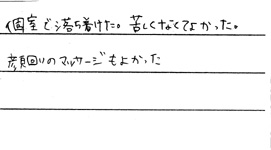 個室で落ち着けた。苦しくなくてよかった。
顔回りのマッサージもよかった